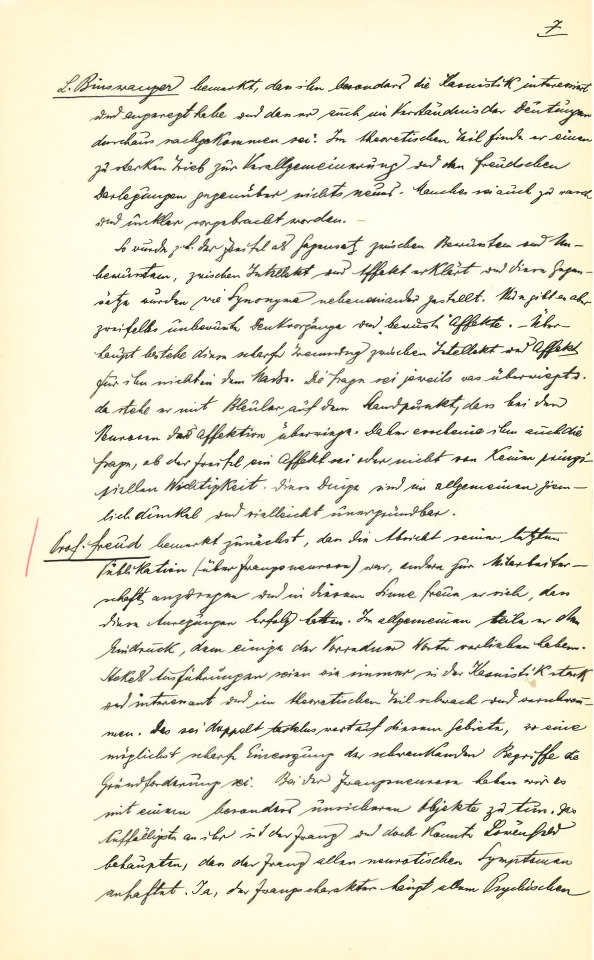 7
L. Binswanger bemerkt, dass ihn besonders die Kasuistik interessiert
und angeregt habe und dass er auch im Verständnis der Deutungen
durchaus nachgekommen sei. Im theoretischen Teil finde er einen
zu starken Trieb zur Verallgemeinerung und den Freudschen
Darlegungen gegenüber nichts neues. Manches sei auch zu rasch
und unklar vorgebracht worden. –
So wurde z.B. der Zweifel als Gegensatz zwischen Bewusstem und Un-
bewusstem, zwischen Intellekt und Affekt erklärt und diese Gegen-
sätze wurden wie Synonyma nebeneinander gestellt. Nun gibt es aber
zweifellos unbewusste Denkvorgänge und bewusste Affekte. – Über-
haupt bestehe diese scharfe Trennung zwischen Intellekt und Affekt
für ihn nicht in dem Masse. Die Frage sei jeweils was überwiegt.
da stehe er mit Bleuler auf dem Standpunkt, dass bei den
Neurosen das Affektive überwiege. Daher erscheine ihm auch die
Frage, ob der Zweifel ein Affekt sei oder nicht von keiner prinzi-
piellen Wichtigkeit. Diese Dinge sind im allgemeinen ziem-
lich dunkel und vielleicht unergründbar.
Prof. Freud bemerkt zunächst, dass die Absicht seiner letzten
Publikation (über Zwangsneurose) war, andere zur Mitarbeiter-
schaft anzuregen und in diesem Sinne freue er sich, dass
diese Anregungen Erfolg hatten. Im allgemeinen teile er den
Eindruck, dem einige der Vorredner Worte verliehen haben.
Stekels Ausführungen seien wie immer in der Kasuistik stark
und interessant und im theoretischen Teil schwach und verschwom-
men. Das sei doppelt tadelnswert auf diesem Gebiete, wo eine
möglichst scharfe Einengung der schwankenden Begriffe die
Grundforderung sei. Bei der Zwangsneurose haben wir es
mit einem besonders unsicheren Objekte zu tun. Das
Auffälligste an ihr ist der Zwang und doch konnte Löwenfeld
behaupten, dass der Zwang allen neurotischen Symptomen
anhaftet. Ja, der Zwangscharakter hängt allem Psychischen